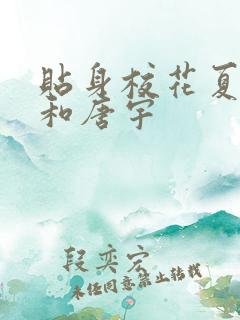 贴身校花夏
和唐宇
段奕宏
未经同意禁止转载